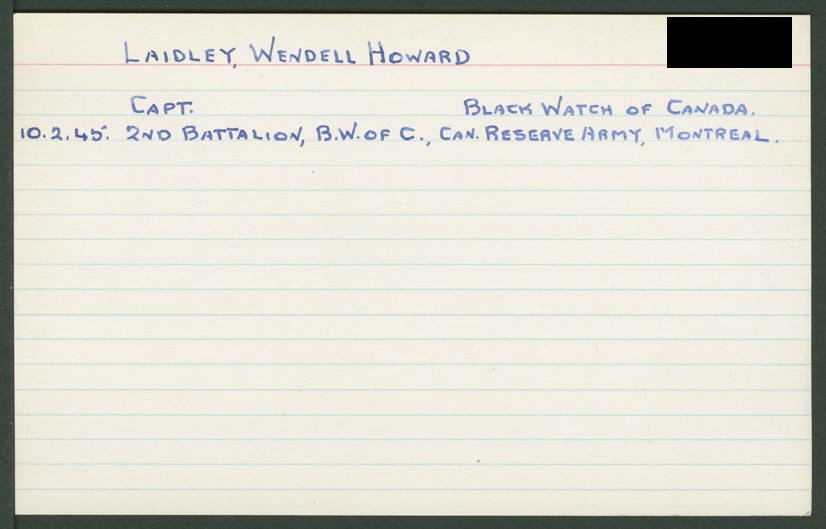 LAIDLEY, WENDELL HOWARD
CAPT. BLACK WATCH OF CANADA.
10.2.45. 2ND BATTALION, B.W. OF C., CAN. RESERVE ARMY, MONTREAL.